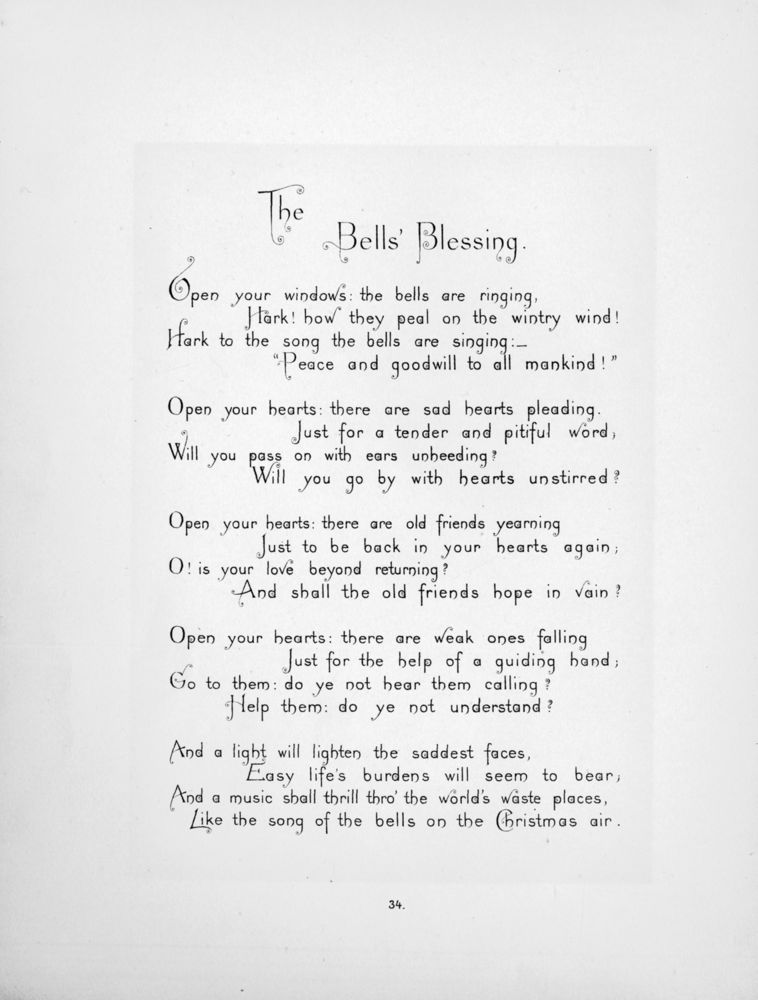 The
Bells' Blessing.
Open your windows: the bells are ringing,
Hark! how they peal on the wintry wind!
Hark to the song the bells are singing:—
"Peace and goodwill to all mankind!"
Open your hearts: there are sad hearts pleading.
Just for a tender and pitiful word;
Will you pass on with ears unheeding?
Will you go by with hearts unstirred?
Open your hearts: there are old friends yearning
Just to be back in your hearts again;
O! is your love beyond returning?
And shall the old friends hope in vain?
Open your hearts: there are weak ones falling
Just for the help of a guiding hand;
Go to them: do ye not hear them calling?
Help them: do ye not understand?
And a light will lighten the saddest faces,
Easy life's burdens will seem to bear;
And a music shall thrill thro' the world's waste places,
Like the song of the bells on the Christmas air.
34.